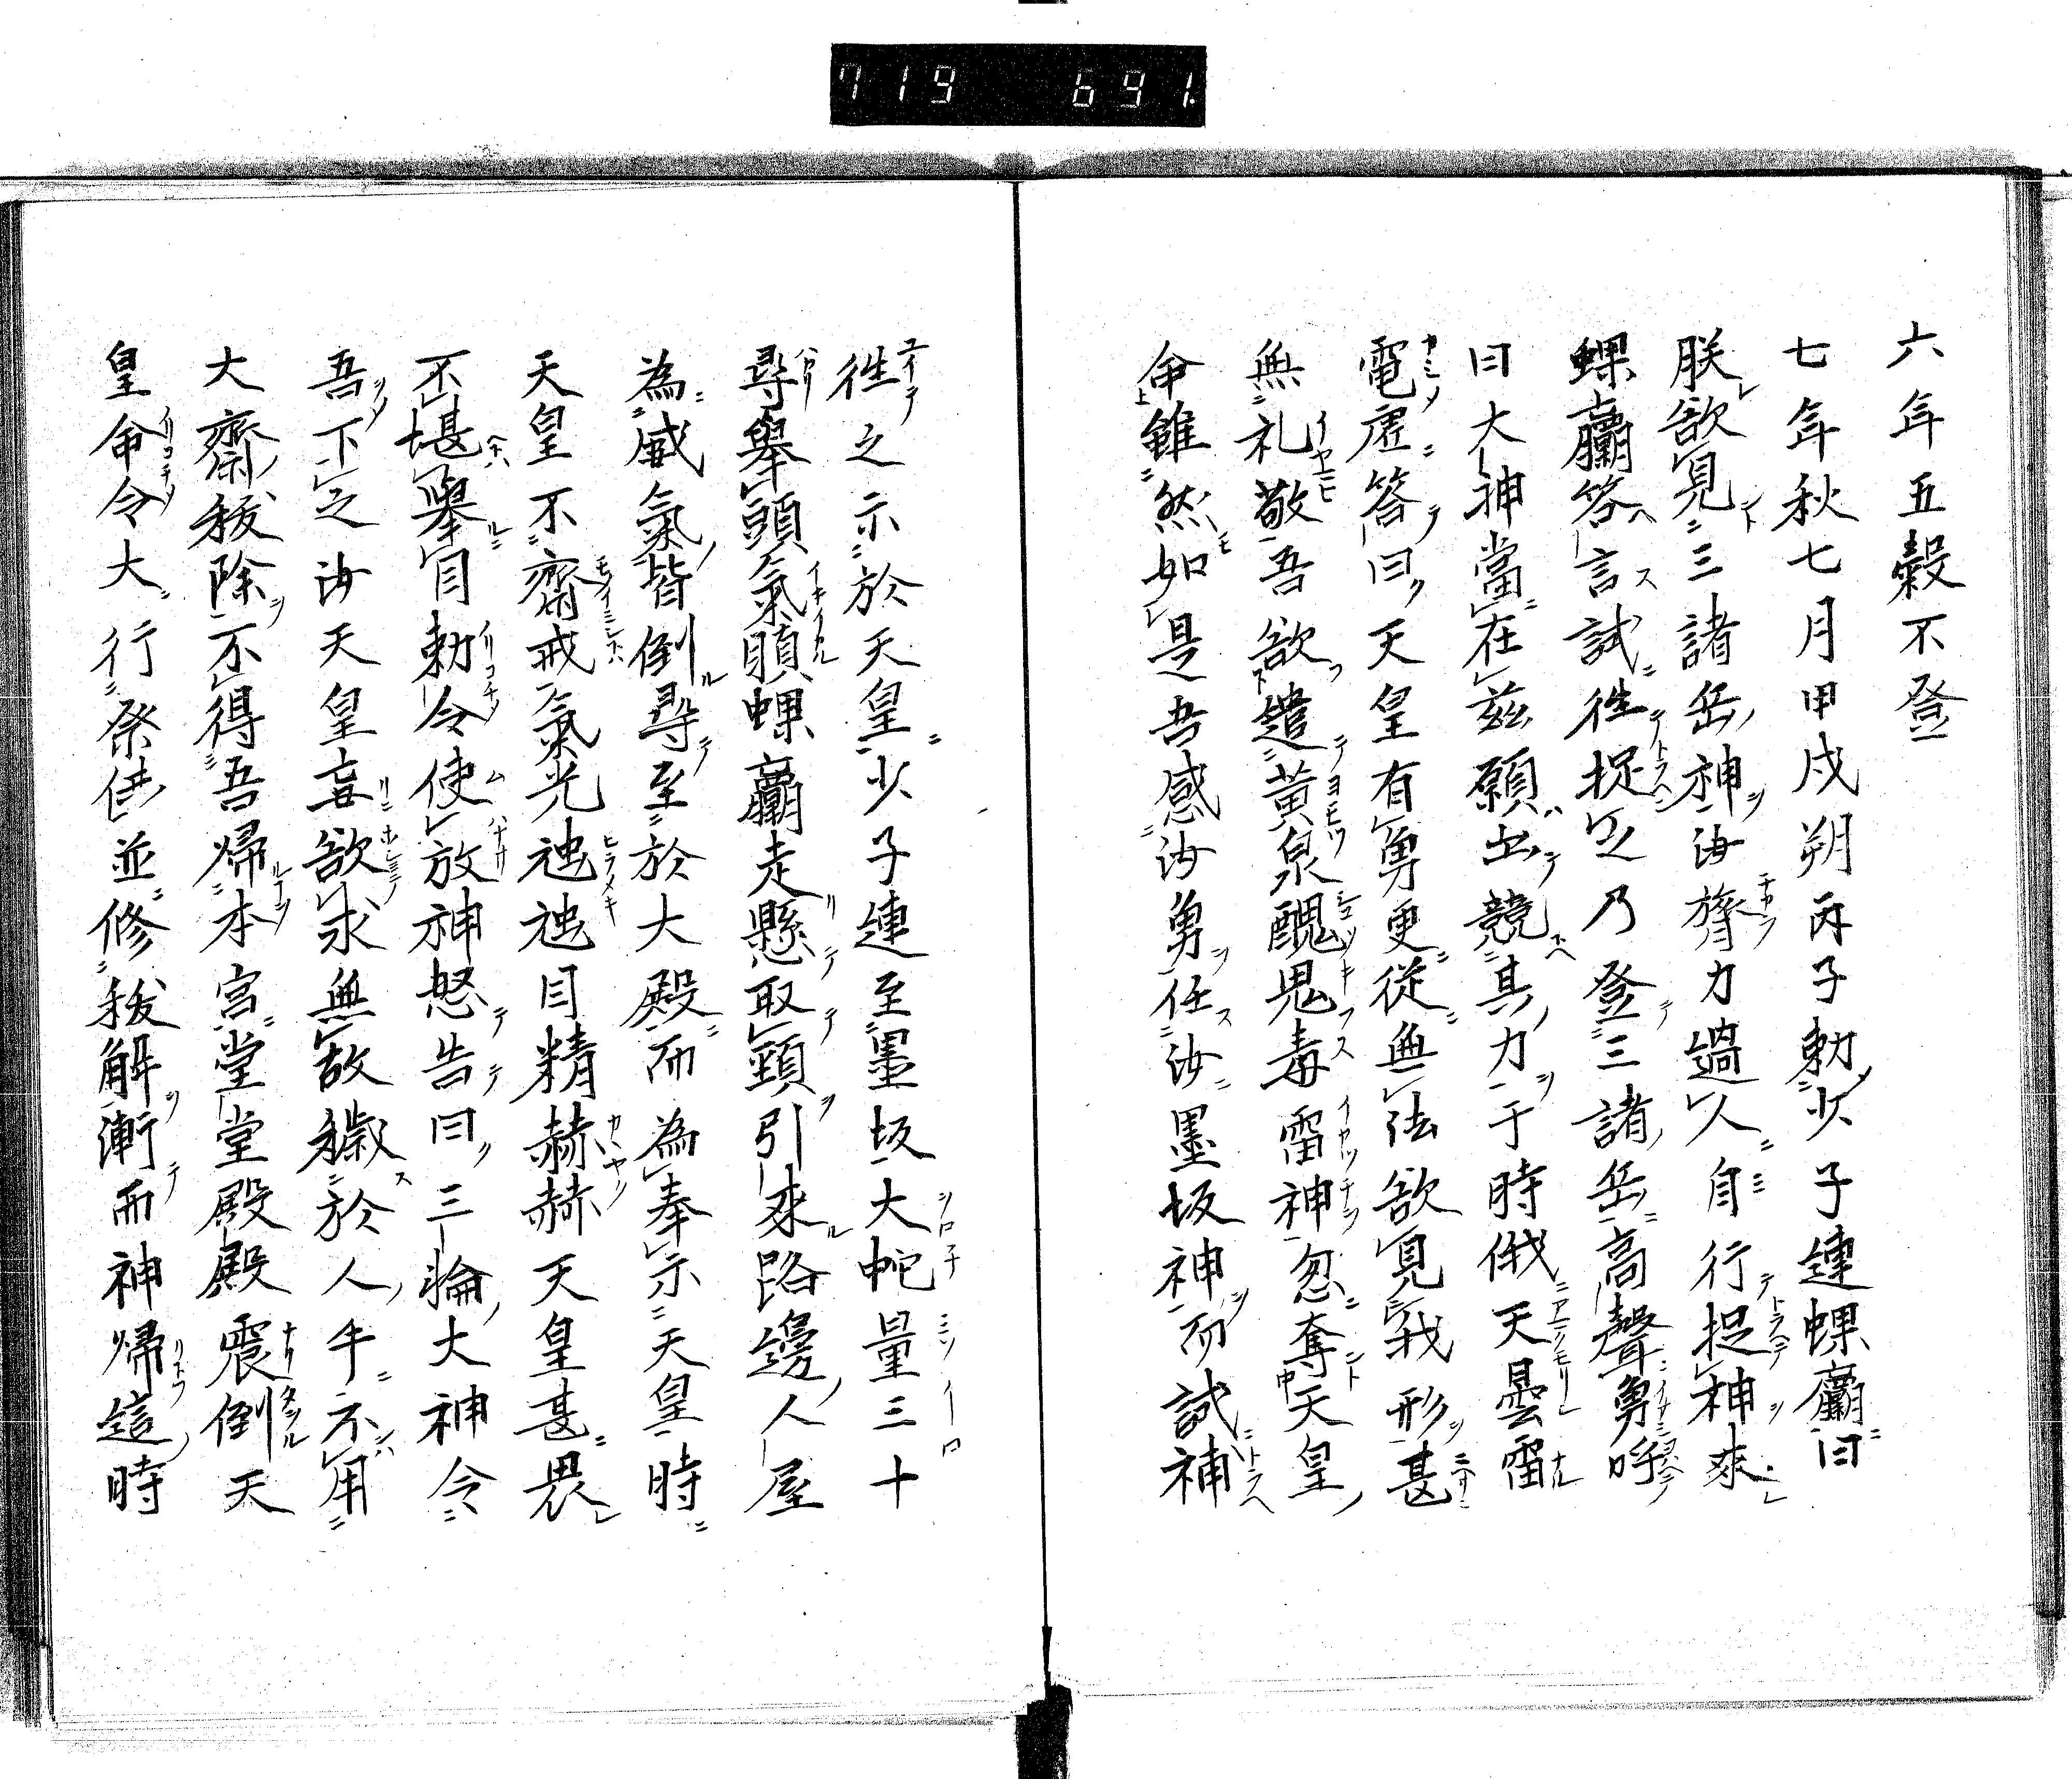 719 691.
六年五穀不登
七年秋七月甲戌朔丙子勅少子連蜾蠃曰
朕欲見三諸岳神汝膂力過人自行捉神來
蜾蠃答言試往捉之乃登三諸岳高聲勇呼
曰大神當在茲願出競其力于時俄天曇雷
電虚答曰天皇有勇更従無法欲見我形甚
無礼敬吾欲遣黄泉醜鬼毒雷神忽奪天皇
命雖然如是吾感汝勇任汝墨坂神而試補
往之示於天皇少子連至墨坂大蛇量三十
尋舉頭氣頤蜾蠃走懸取頸引來路邊人屋
為威氣皆倒尋至於大殿而為奉示天皇時
天皇不齋戒氣光虺虺目精赫赫天皇甚畏
不堪舉目勅令使放神怒告曰三輪大神令
吾下之汝天皇妄欲求無故穢於人手不用
大齋秡除不得吾帰本宮堂堂殿殿震倒天
皇命令大行祭使並修秡解漸而神帰這時